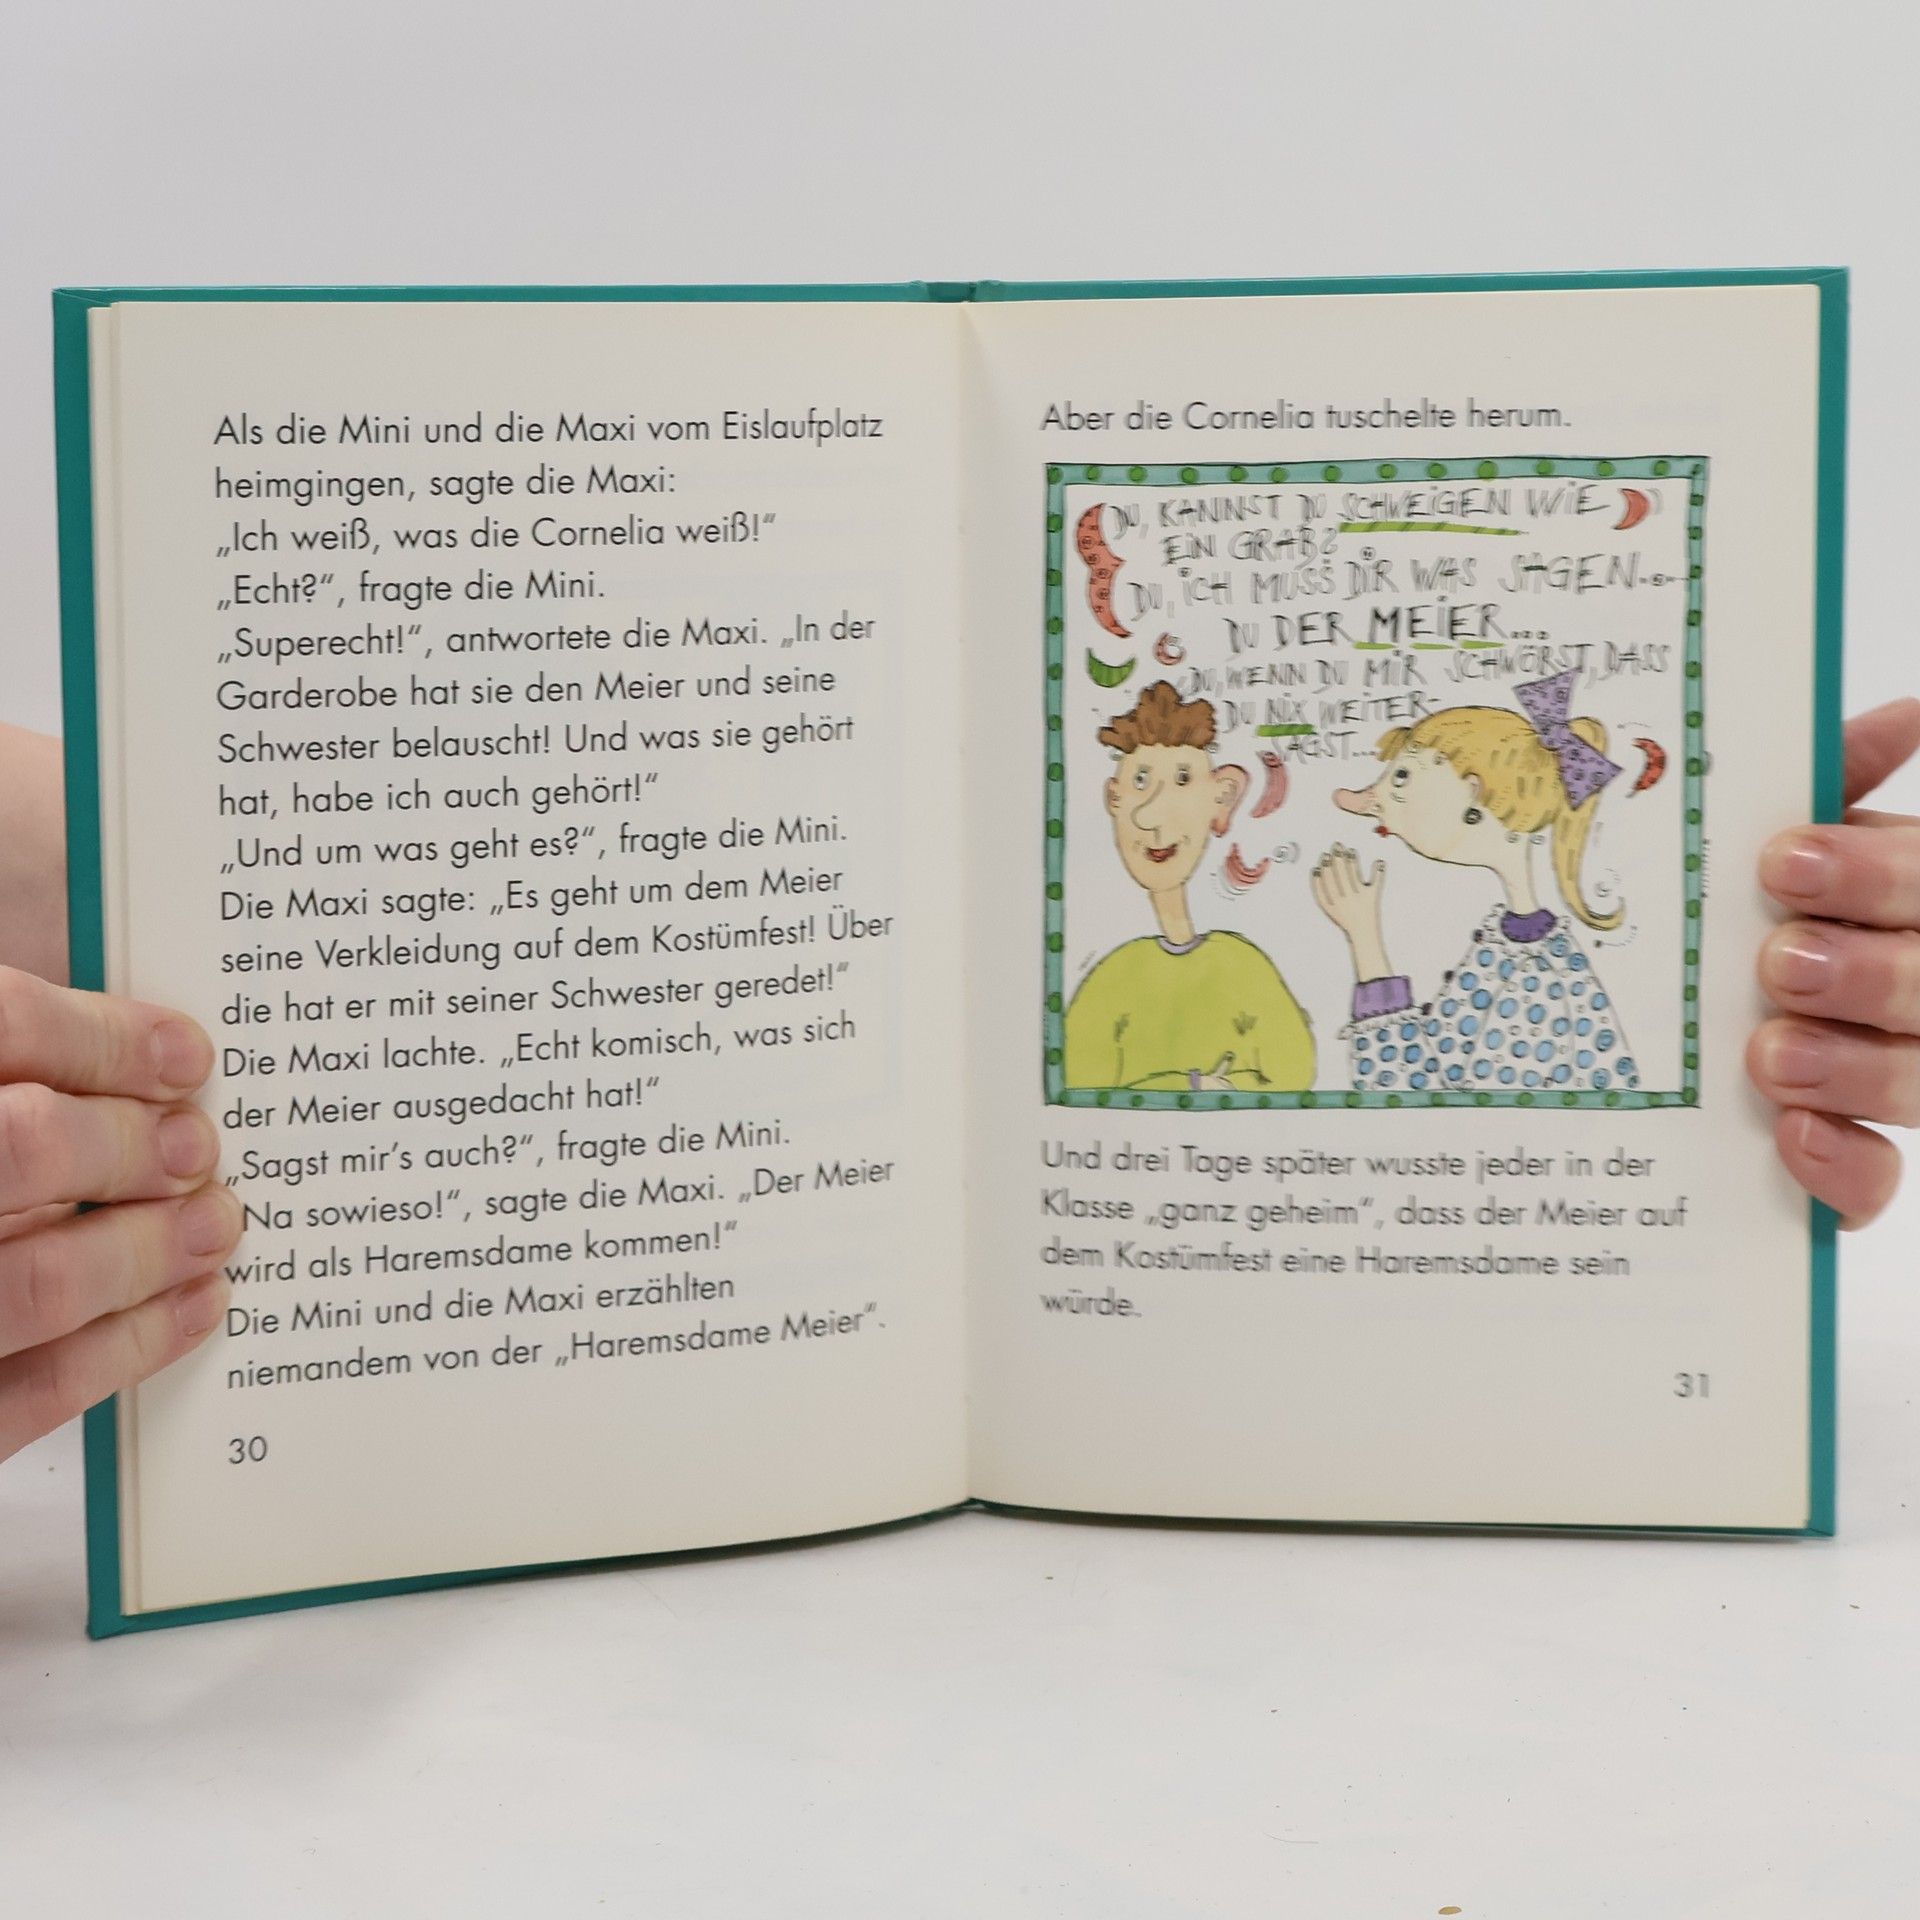 Als die Mini und die Maxi vom Eislaufplatz
heimgingen, sagte die Maxi:
„Ich weiß, was die Cornelia weiß!“
„Echt?“, fragte die Mini.
„Superecht!“, antwortete die Maxi. „In der
Garderobe hat sie den Meier und seine
Schwester belauscht! Und was sie gehört
hat, habe ich auch gehört!“
„Und um was geht es?“, fragte die Mini.
Die Maxi sagte: „Es geht um dem Meier
seine Verkleidung auf dem Kostümfest! Über
die hat er mit seiner Schwester geredet!“
Die Maxi lachte. „Echt komisch, was sich
der Meier ausgedacht hat!“
„Sagst mir’s auch?“, fragte die Mini.
Na sowieso!“, sagte die Maxi. „Der Meier
wird als Haremsdame kommen!“
Die Mini und die Maxi erzählten
niemandem von der „Haremsdame Meier“.
30
Aber die Cornelia tuschelte herum.
DU, KANNST DU SCHWEIGEN WIE
EIN GRAB?
DU, ICH MUSS DIR WAS SAGEN...
DU DER MEIER...
DU, WENN DU MIR SCHWÖRST, DASS
DU NIX WEITER-
SAGST...
Und drei Tage später wusste jeder in der
Klasse „ganz geheim“, dass der Meier auf
dem Kostümfest eine Haremsdame sein
würde.
31